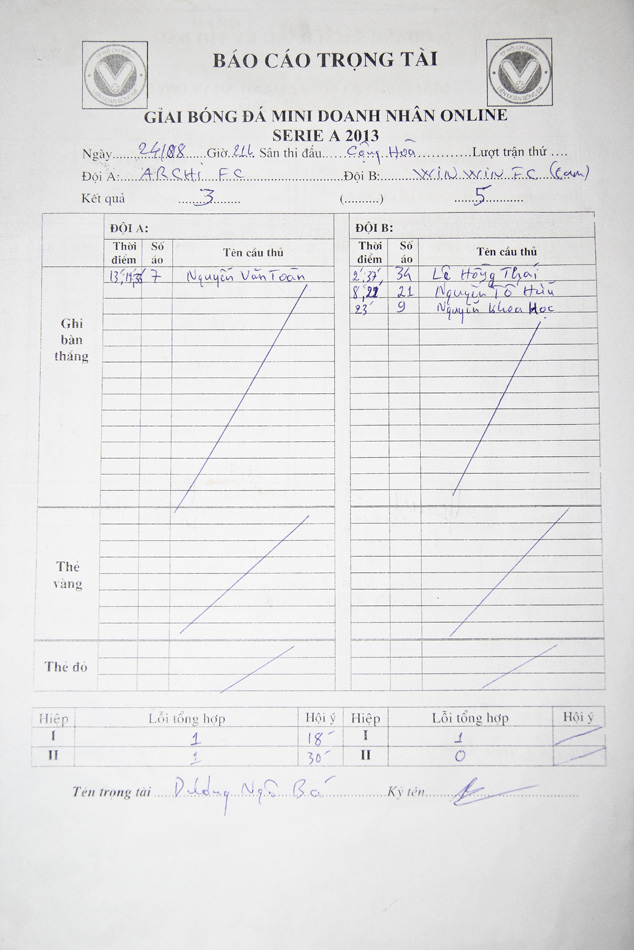 BÁO CÁO TRỌNG TÀI
GIẢI BÓNG ĐÁ MINI DOANH NHÂN ONLINE
SERIE A 2013
Ngày 24/08 Giờ 21h Sân thi đấu Cộng Hoà Lượt trận thứ ....
Đội A: ARCHI FC Đội B: WIN WIN FC (Cam)
Kết quả 3 (..........) 5
ĐỘI A: ĐỘI B:
Thời điểm Số áo Tên cầu thủ Thời điểm Số áo Tên cầu thủ
Ghi bàn thắng
7 Nguyễn Văn Toàn 2', 37' 34 Lê Hồng Thái
21 Nguyễn Tố Hữu
23' 9 Nguyễn Khoa Học
Thẻ vàng
Thẻ đỏ
Hiệp Lỗi tổng hợp Hội ý Hiệp Lỗi tổng hợp Hội ý
I 1 18' I 1
II 1 30' II 0
Tên trọng tài Dương Ngô Bá Ký tên